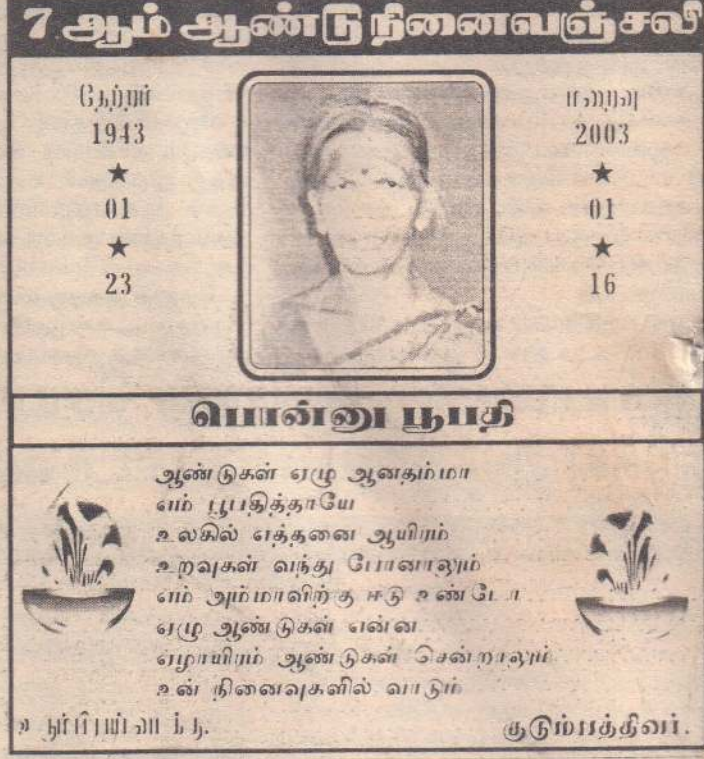 7 ஆம் ஆண்டு நினைவஞ்சலி
தோற்றம்
1943
★
01
★
23
மறைவு
2003
★
01
★
16
பொன்னு பூபதி
ஆண்டுகள் ஏழு ஆனதம்மா
எம் பூபதித்தாயே
உலகில் எத்தனை ஆயிரம்
உறவுகள் வந்து போனாலும்
எம் அம்மாவிற்கு ஈடு உண்டோ
ஏழு ஆண்டுகள் என்ன
ஏழாயிரம் ஆண்டுகள் சென்றாலும்
உன் நினைவுகளில் வாடும்
குடும்பத்தினர்.